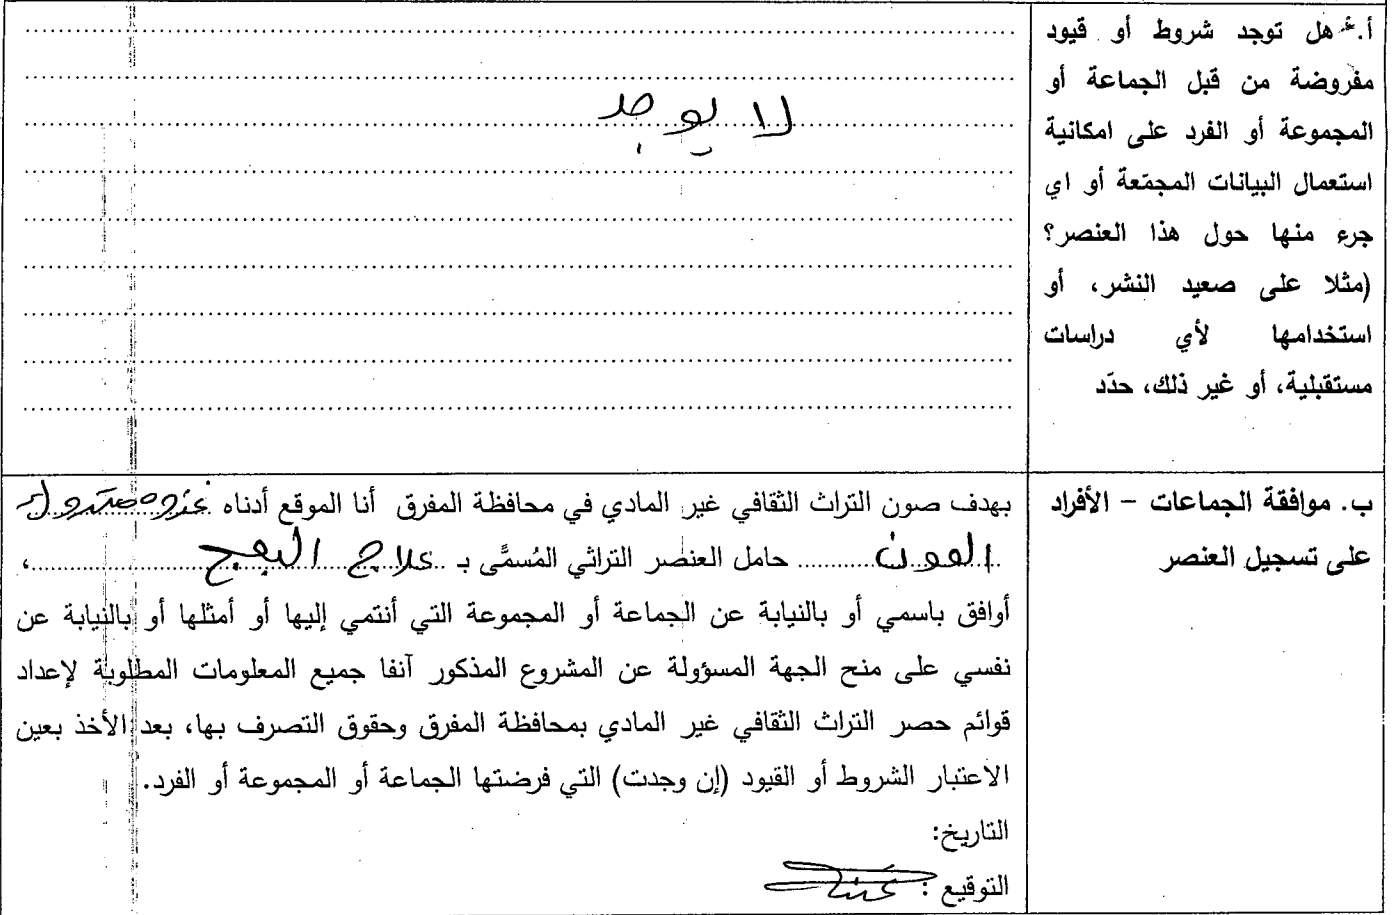 أ. هل توجد شروط أو قيود
مفروضة من قبل الجماعة أو
المجموعة أو الفرد على امكانية
استعمال البيانات المجمّعة أو اي
جرء منها حول هذا العنصر؟
(مثلا على صعيد النشر، أو
استخدامها لأي دراسات
مستقبلية، أو غير ذلك، حدّد
لا يوجد
ب. موافقة الجماعات – الأفراد
على تسجيل العنصر
بهدف صون التراث الثقافي غير المادي في محافظة المفرق أنا الموقع أدناه
العون حامل العنصر التراثي المُسمَّى بـ علاج البعج،
أوافق باسمي أو بالنيابة عن الجماعة أو المجموعة التي أنتمي إليها أو أمثلها أو بالنيابة عن
نفسي على منح الجهة المسؤولة عن المشروع المذكور آنفا جميع المعلومات المطلوبة لإعداد
قوائم حصر التراث الثقافي غير المادي بمحافظة المفرق وحقوق التصرف بها، بعد الأخذ بعين
الاعتبار الشروط أو القيود (إن وجدت) التي فرضتها الجماعة أو المجموعة أو الفرد.
التاريخ:
التوقيع :